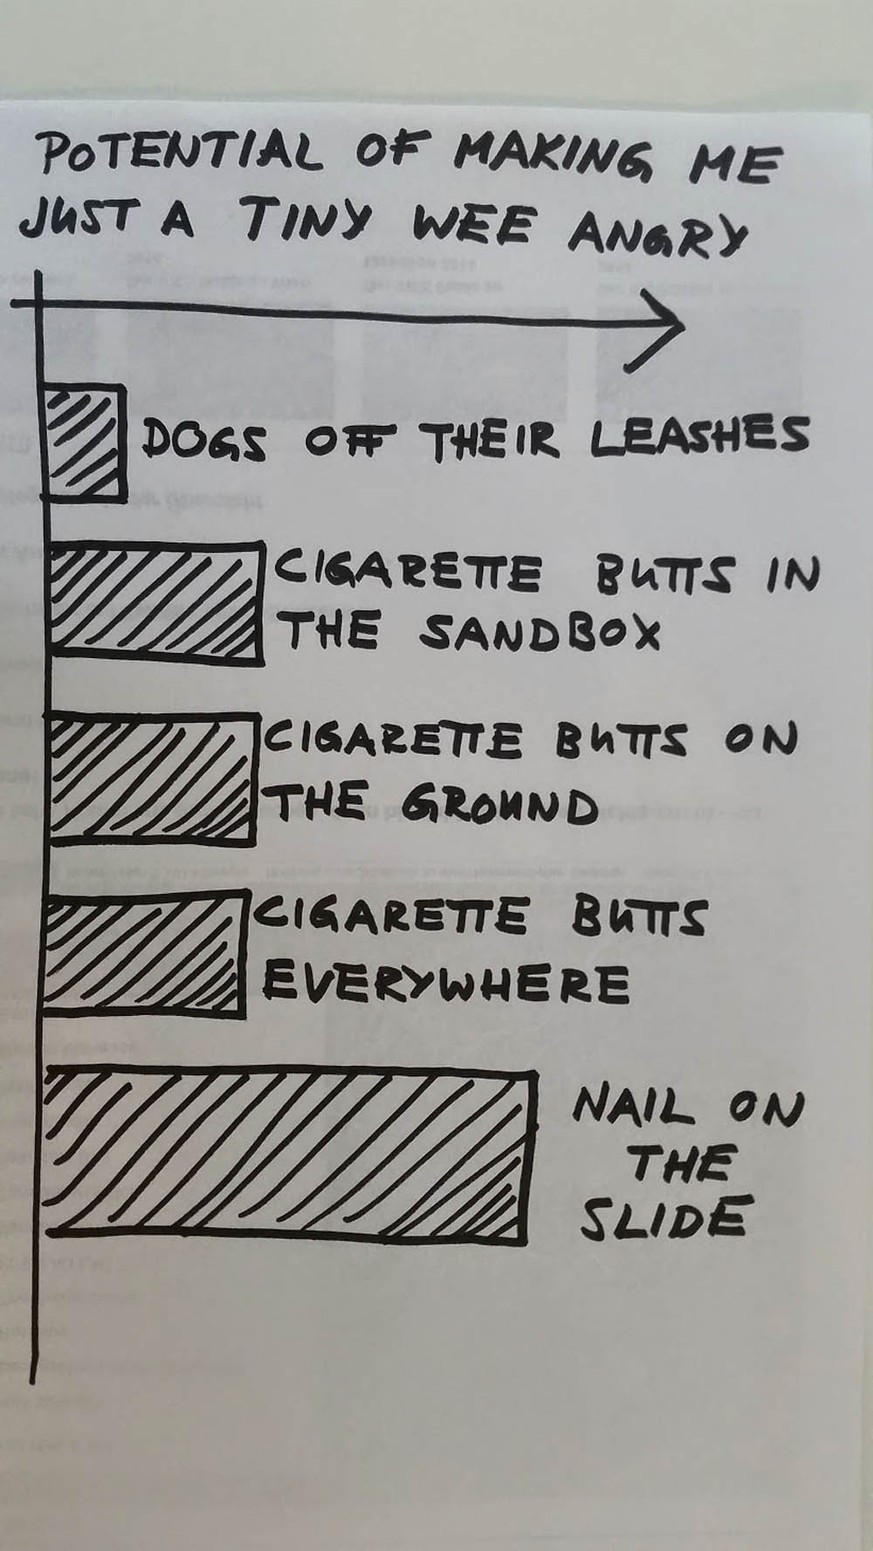 POTENTIAL OF MAKING ME
JUST A TINY WEE ANGRY
DOGS OFF THEIR LEASHES
CIGARETTE BUTTS IN
THE SANDBOX
CIGARETTE BUTTS ON
THE GROUND
CIGARETTE BUTTS
EVERYWHERE
NAIL ON
THE
SLIDE